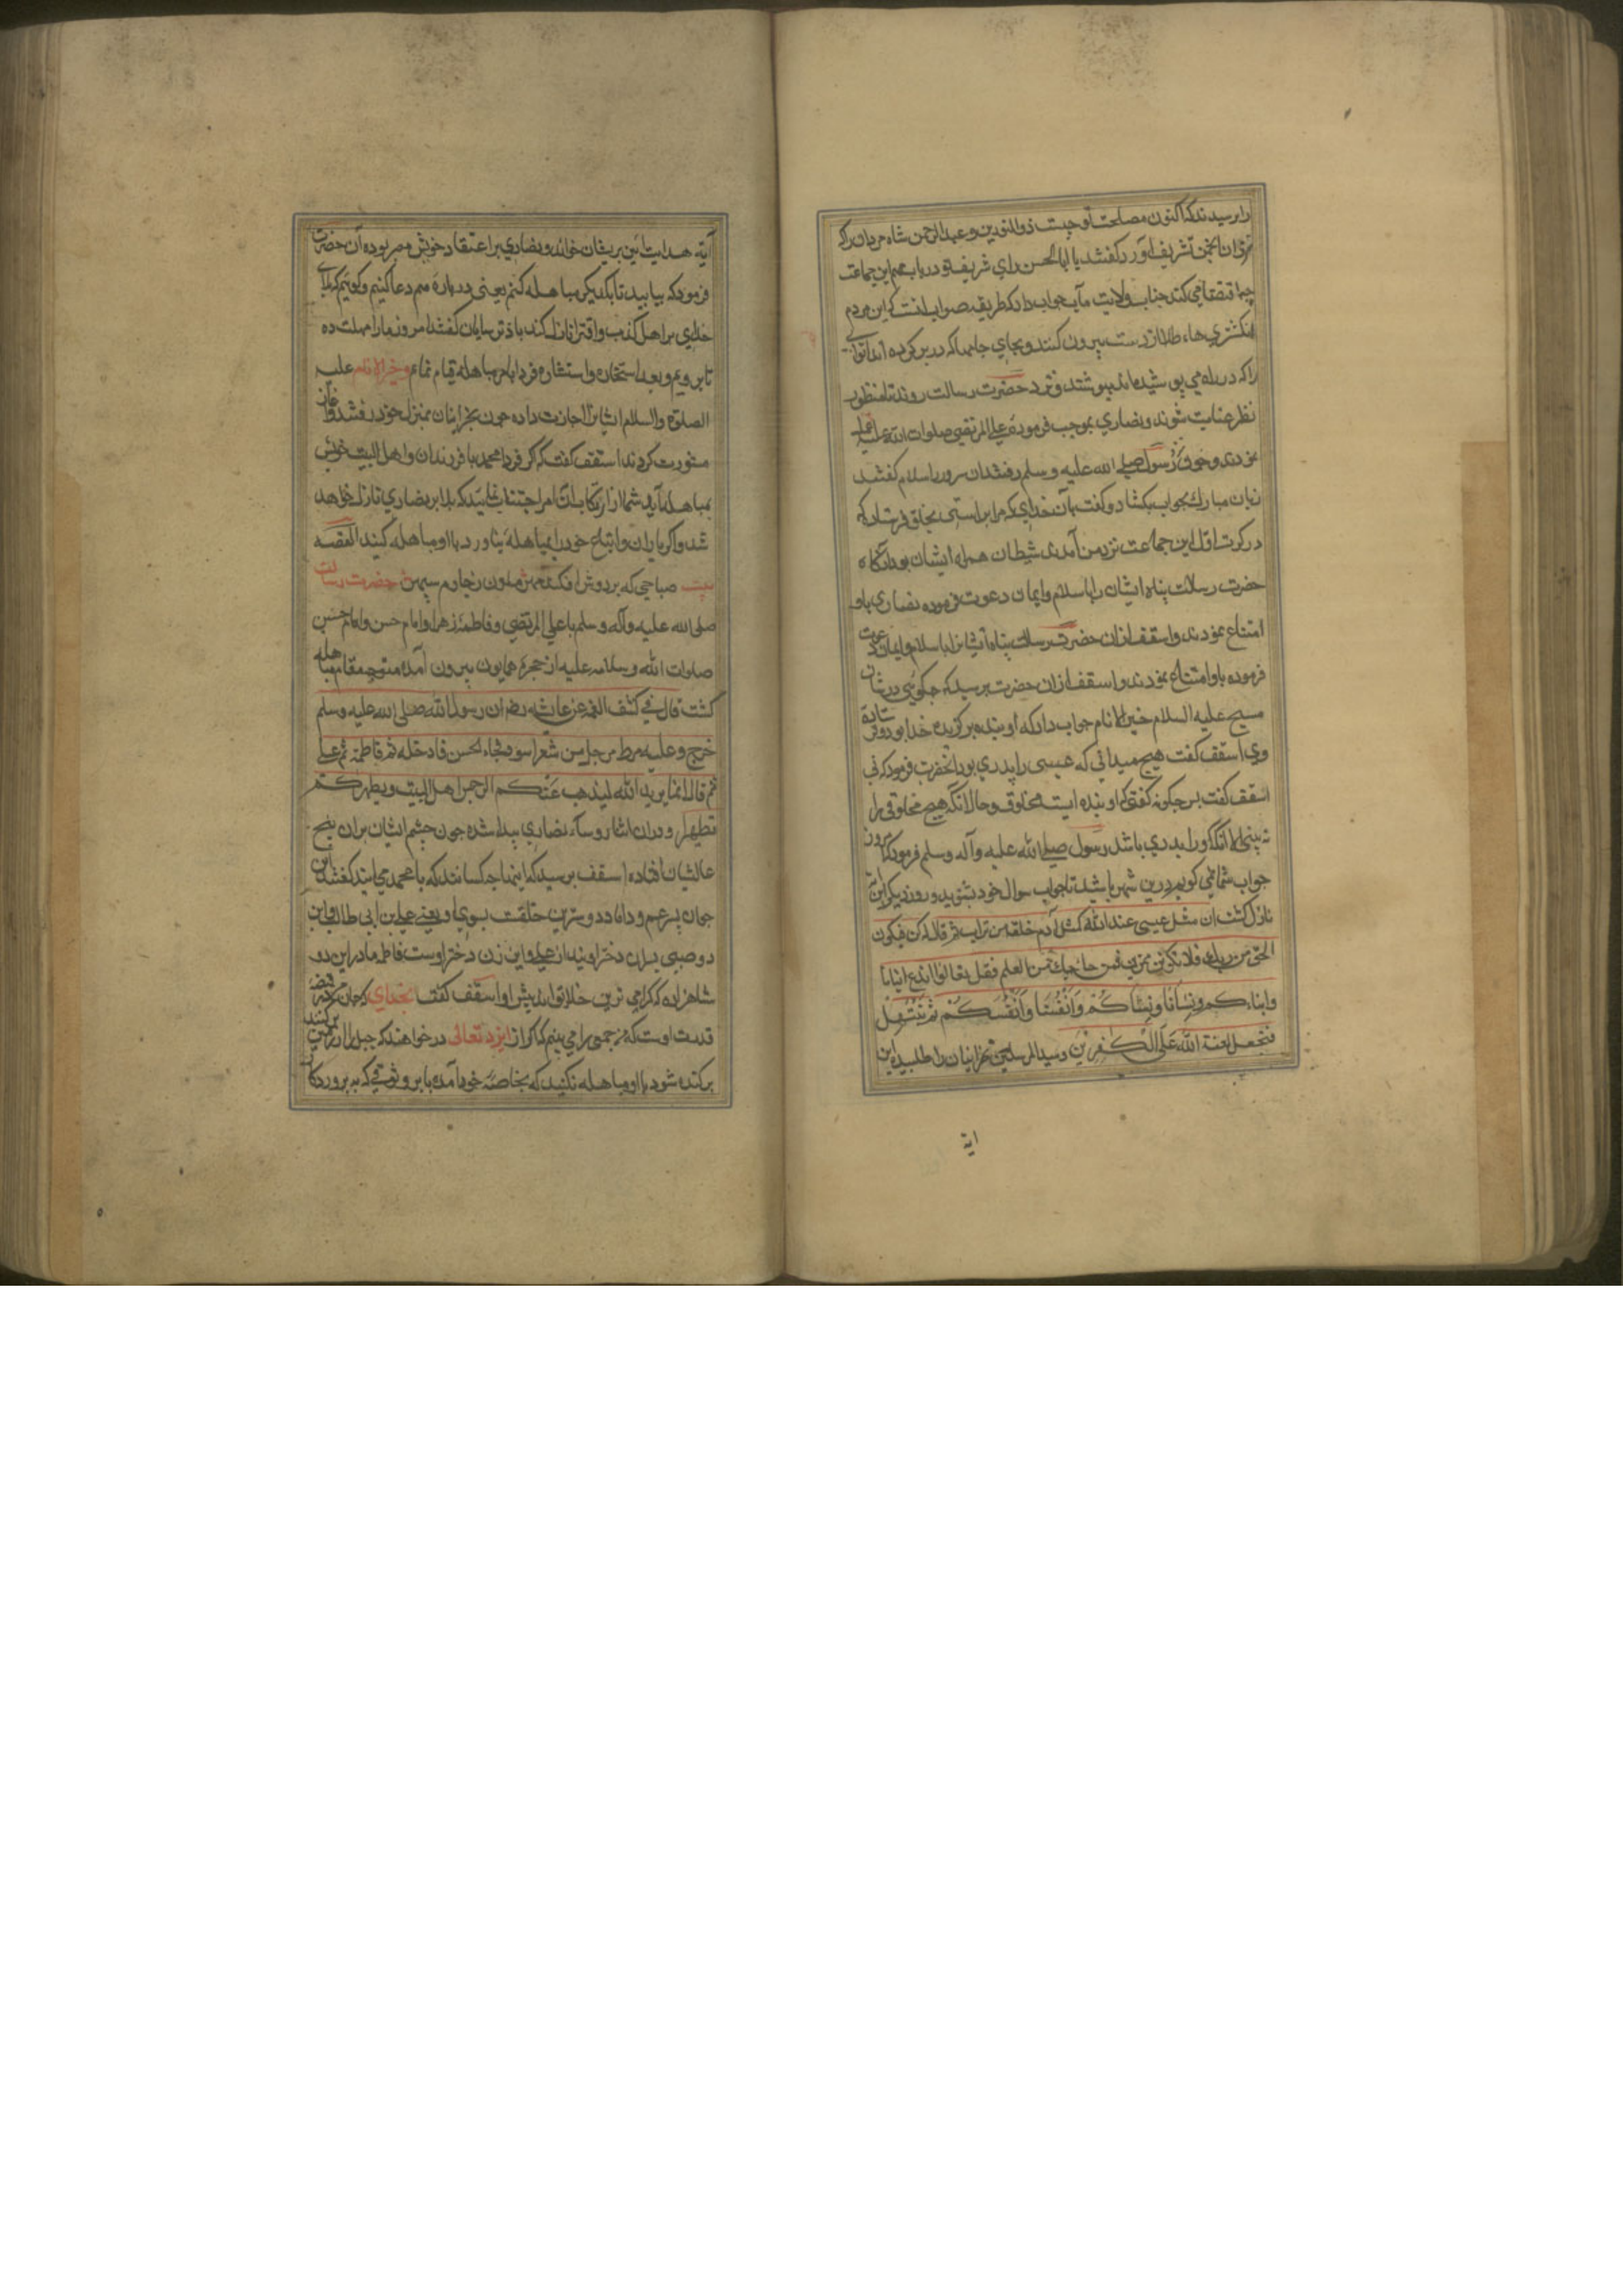 را پرسیدند که اکنون مصلحت تو چیست ذو النورین و عبد الرحمن شاه مردان را که
دران انجمن تشریف آورد گفتند یا ابا الحسن رای شریف تو در باب مهم این جماعت
چه اقتضا می کند جناب ولایت مآب جواب داد که طریقه صواب انست که این مردم
انکشتری هاء طلا از دست بیرون کنند و بجای جامها که در بر کرده اند اثوابی
را که در راه می پوشیده اند بپوشند و نزد حضرت رسالت روند تا منظور
نظر عنایت شوند و نصاری بموجب فرموده علی المرتضی صلوات الله علیه عمل
نمودند و چون نزد رسول صلی الله علیه وسلم رفتند ان سرور را سلام گفتند
زبان مبارک بجواب بکشاد و گفت بآن خدای که مرا براستی بخلق فرستاد که
در کرت اول این جماعت نزد من آمدند شیطان همراه ایشان بود انکاه
حضرت رسالت پناه ایشان را باسلام و ایمان دعوت فرموده نصاری با و
امتناع نمودند و اسقف ازان حضرت رسالت پناه ایشانرا باسلام و ایمان دعوت
فرموده با و امتناع نمودند و اسقف ازان حضرت پرسید که چکوئی در شان
مسیح علیه السلام خیر الانام جواب داد که او بنده برکزیده خدا بود
وی اسقف کفت هیچ میدانی که عیسی را پدری بود انحضرت فرمود که نی
اسقف کفت پس چکونه کفتی که او بنده ایست مخلوق و حال انکه هیچ مخلوقی را
نه بینی الا انکه او را پدری باشد رسول صلی الله علیه وآله وسلم فرمود که امروز
جواب شما نمی کویم درین شهر باشید تا جواب سوال خود بشنوید و روز دیکر این
نازل کشت ان مثل عیسی عند الله کمثل آدم خلقه من تراب ثم قال له کن فیکون
الحق من ربک فلا تکونن من الممترین فمن حاجک من العلم فقل تعالوا ندع ابنانا
وابناءکم ونسانا ونساکم وانفسنا وانفسکم ثم نبتهل
فنجعل لعنة الله علی الکفرین و سید المرسلین نجرانیان را طلبیده این
ایة
آیه هدایت آیین بریشان خواند و نصاری بر اعتقاد خویش مصر بوده آن حضرت
فرمود که بیایید تا بایکدیکر مباهله کنیم یعنی در باره هم دعا کنیم و کوییم که بلای
خدای بر اهل کذب و افترا نازل کند باز ترسایان کفتند امروز ما را مهلت ده
تا برویم و بعد استخاره و استشاره فردا بامر مباهله قیام نمایم خیر الانام علیه
الصلوة والسلام ایشانرا اجازت داده چون نجرانیان بمنزل خود رفتند و آغاز
مشورت کردند اسقف کفت که اکر فردا محمد با فرزندان و اهل البیت خویش
بمباهله آید شما از ارتکاب ان امر اجتناب نمایید که بلا بر نصاری نازل خواهد
شد و اکر یاران و اتباع خود را بمباهله بیاورد با او مباهله کنید القصه
بیت صباحی که بر دوش افکند حضرت رسالت
صلی الله علیه وآله وسلم با علی المرتضی و فاطمه زهرا و امام حسن و امام حسین
صلوات الله وسلامه علیه از حجره همایون بیرون آمده متوجه مقام مباهله
کشت قال فی کشف الغمه عن عایشه رض ان رسول الله صلی الله علیه وسلم
خرج و علیه مرط مرجل من شعر اسود فجاء الحسن فادخله ثم فاطمة ثم علی
ثم قال انما یرید الله لیذهب عنکم الرجس اهل البیت ویطهرکم
تطهیرا و دران اثنا روساء نصاری پیدا شده چون چشم ایشان بران پنج
عالیشان افتاده اسقف پرسید که اینها چه کسانند که با محمد می ایند کفتند این
جوان پسر عم و داماد و دوسترین خلقت بسوی او یعنی علی بن ابی طالب و این
دو صبی پسران دختر اویند از علی و این زن دختر اوست فاطمه مادر این دو
شاهزاده که کرامی ترین خلایق اند پیش او اسقف کفت بخدای که جان من در قبضه
قدرت اوست که من جمعی را می بینم که اکر از ایزد تعالی درخواهند که جبل را از زمین برکند
برکنده شود با او مباهله نکنید که بخاصه خود آمده با وثوقی که به پروردکار